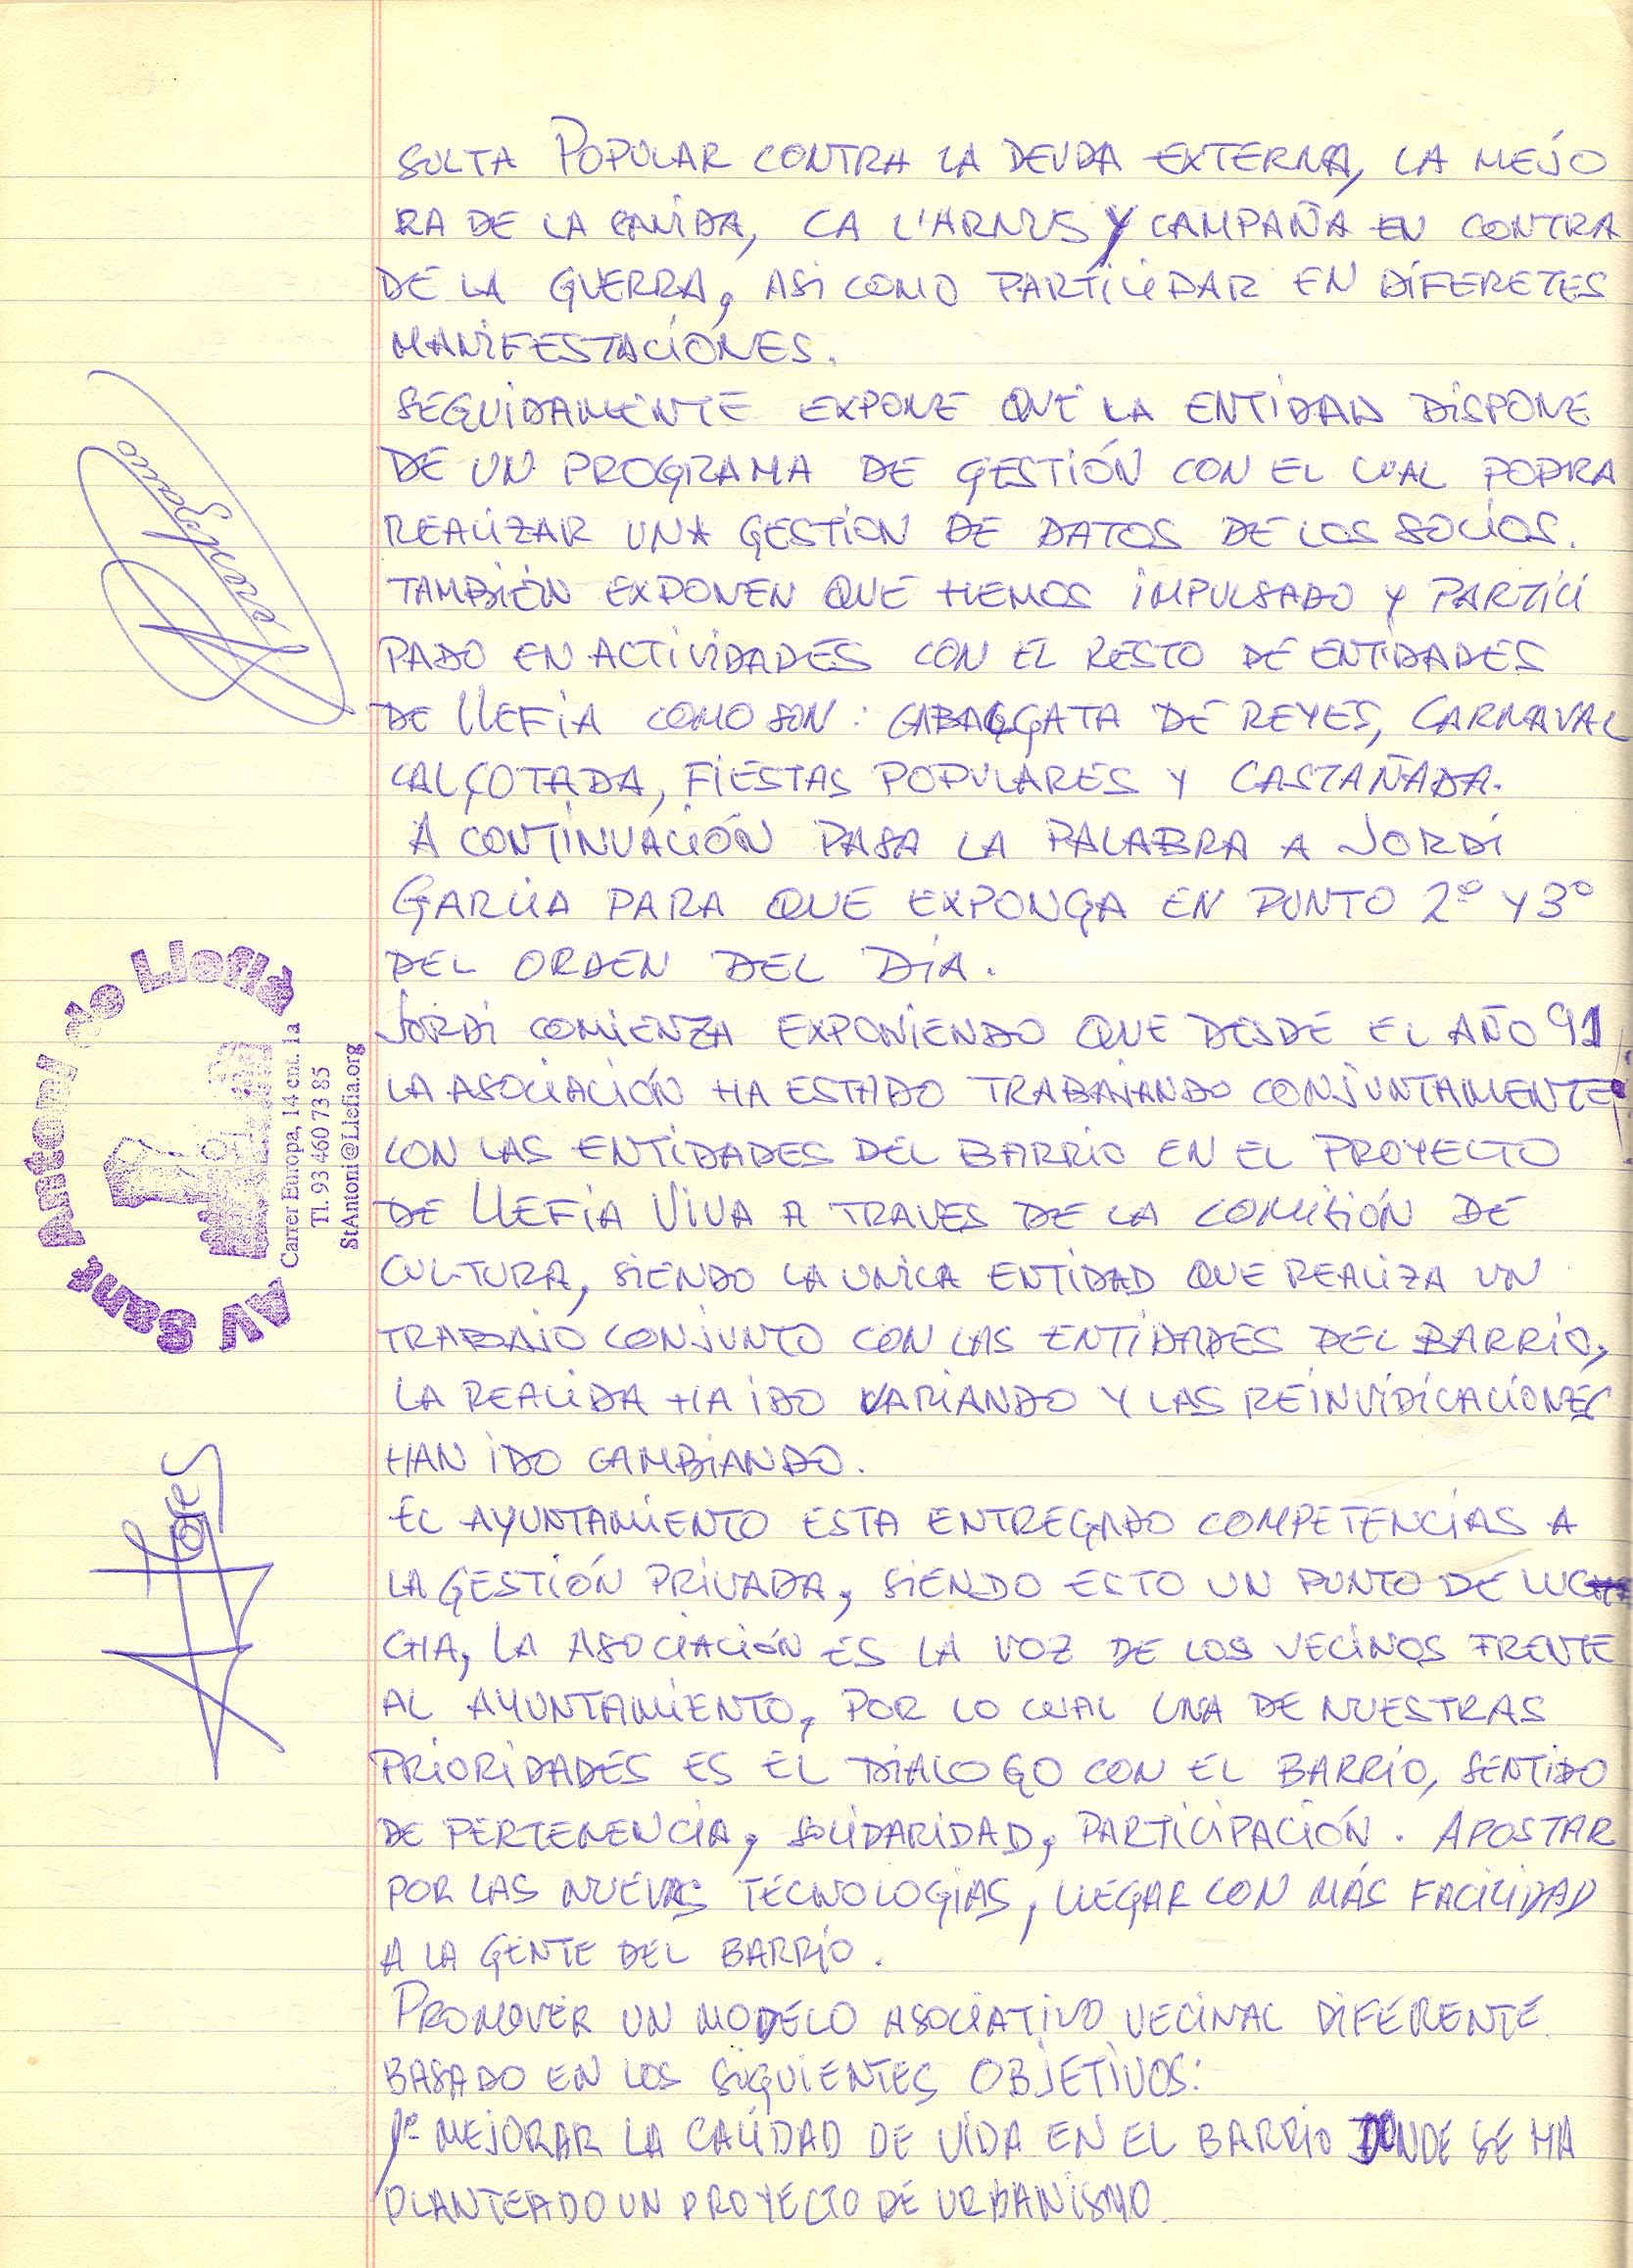 SULTA POPULAR CONTRA LA DEUDA EXTERNA, LA MEJO
RA DE LA SANIDA, CA L'ARNUS Y CAMPAÑA EN CONTRA
DE LA GUERRA, ASI COMO PARTICIPAR EN DIFERETES
MANIFESTACIONES.
SEGUIDAMENTE EXPONE QUE LA ENTIDAD DISPONE
DE UN PROGRAMA DE GESTIÓN CON EL CUAL PODRA
REALIZAR UNA GESTION DE DATOS DE LOS SOCIOS.
TAMBIÉN EXPONEN QUE HEMOS IMPULSADO Y PARTICI
PADO EN ACTIVIDADES CON EL RESTO DE ENTIDADES
DE LLEFIA COMO SON: CABALGATA DE REYES, CARNAVAL
CALÇOTADA, FIESTAS POPULARES Y CASTAÑADA.
A CONTINUACIÓN PASA LA PALABRA A JORDI
GARCIA PARA QUE EXPONGA EN PUNTO 2º Y 3º
DEL ORDEN DEL DÍA.
JORDI COMIENZA EXPONIENDO QUE DESDE EL AÑO 91
LA ASOCIACIÓN HA ESTADO TRABAJANDO CONJUNTAMENTE
CON LAS ENTIDADES DEL BARRIO EN EL PROYECTO
DE LLEFIA VIVA A TRAVES DE LA COMISIÓN DE
CULTURA, SIENDO LA UNICA ENTIDAD QUE REALIZA UN
TRABAJO CONJUNTO CON LAS ENTIDADES DEL BARRIO,
LA REALIDA HA IDO VARIANDO Y LAS REINVIDICACIONES
HAN IDO CAMBIANDO.
EL AYUNTAMIENTO ESTA ENTREGADO COMPETENCIAS A
LA GESTIÓN PRIVADA, SIENDO ESTO UN PUNTO DE
LA ASOCIACIÓN ES LA VOZ DE LOS VECINOS FRENTE
AL AYUNTAMIENTO, POR LO CUAL UNA DE NUESTRAS
PRIORIDADES ES EL DIALOGO CON EL BARRIO, SENTIDO
DE PERTENENCIA, SOLIDARIDAD, PARTICIPACIÓN. APOSTAR
POR LAS NUEVAS TECNOLOGIAS, LLEGAR CON MÁS FACILIDAD
A LA GENTE DEL BARRIO.
PROMOVER UN MODELO ASOCIATIVO VECINAL DIFERENTE
BASADO EN LOS SIGUIENTES OBJETIVOS:
1º MEJORAR LA CALIDAD DE VIDA EN EL BARRIO DONDE SE HA
PLANTEADO UN PROYECTO DE URBANISMO.
AV Sant Antoni de Llefià
Carrer Europa, 14 cnt. 1a
Tl. 93 460 73 85
StAntoni@Llefia.org